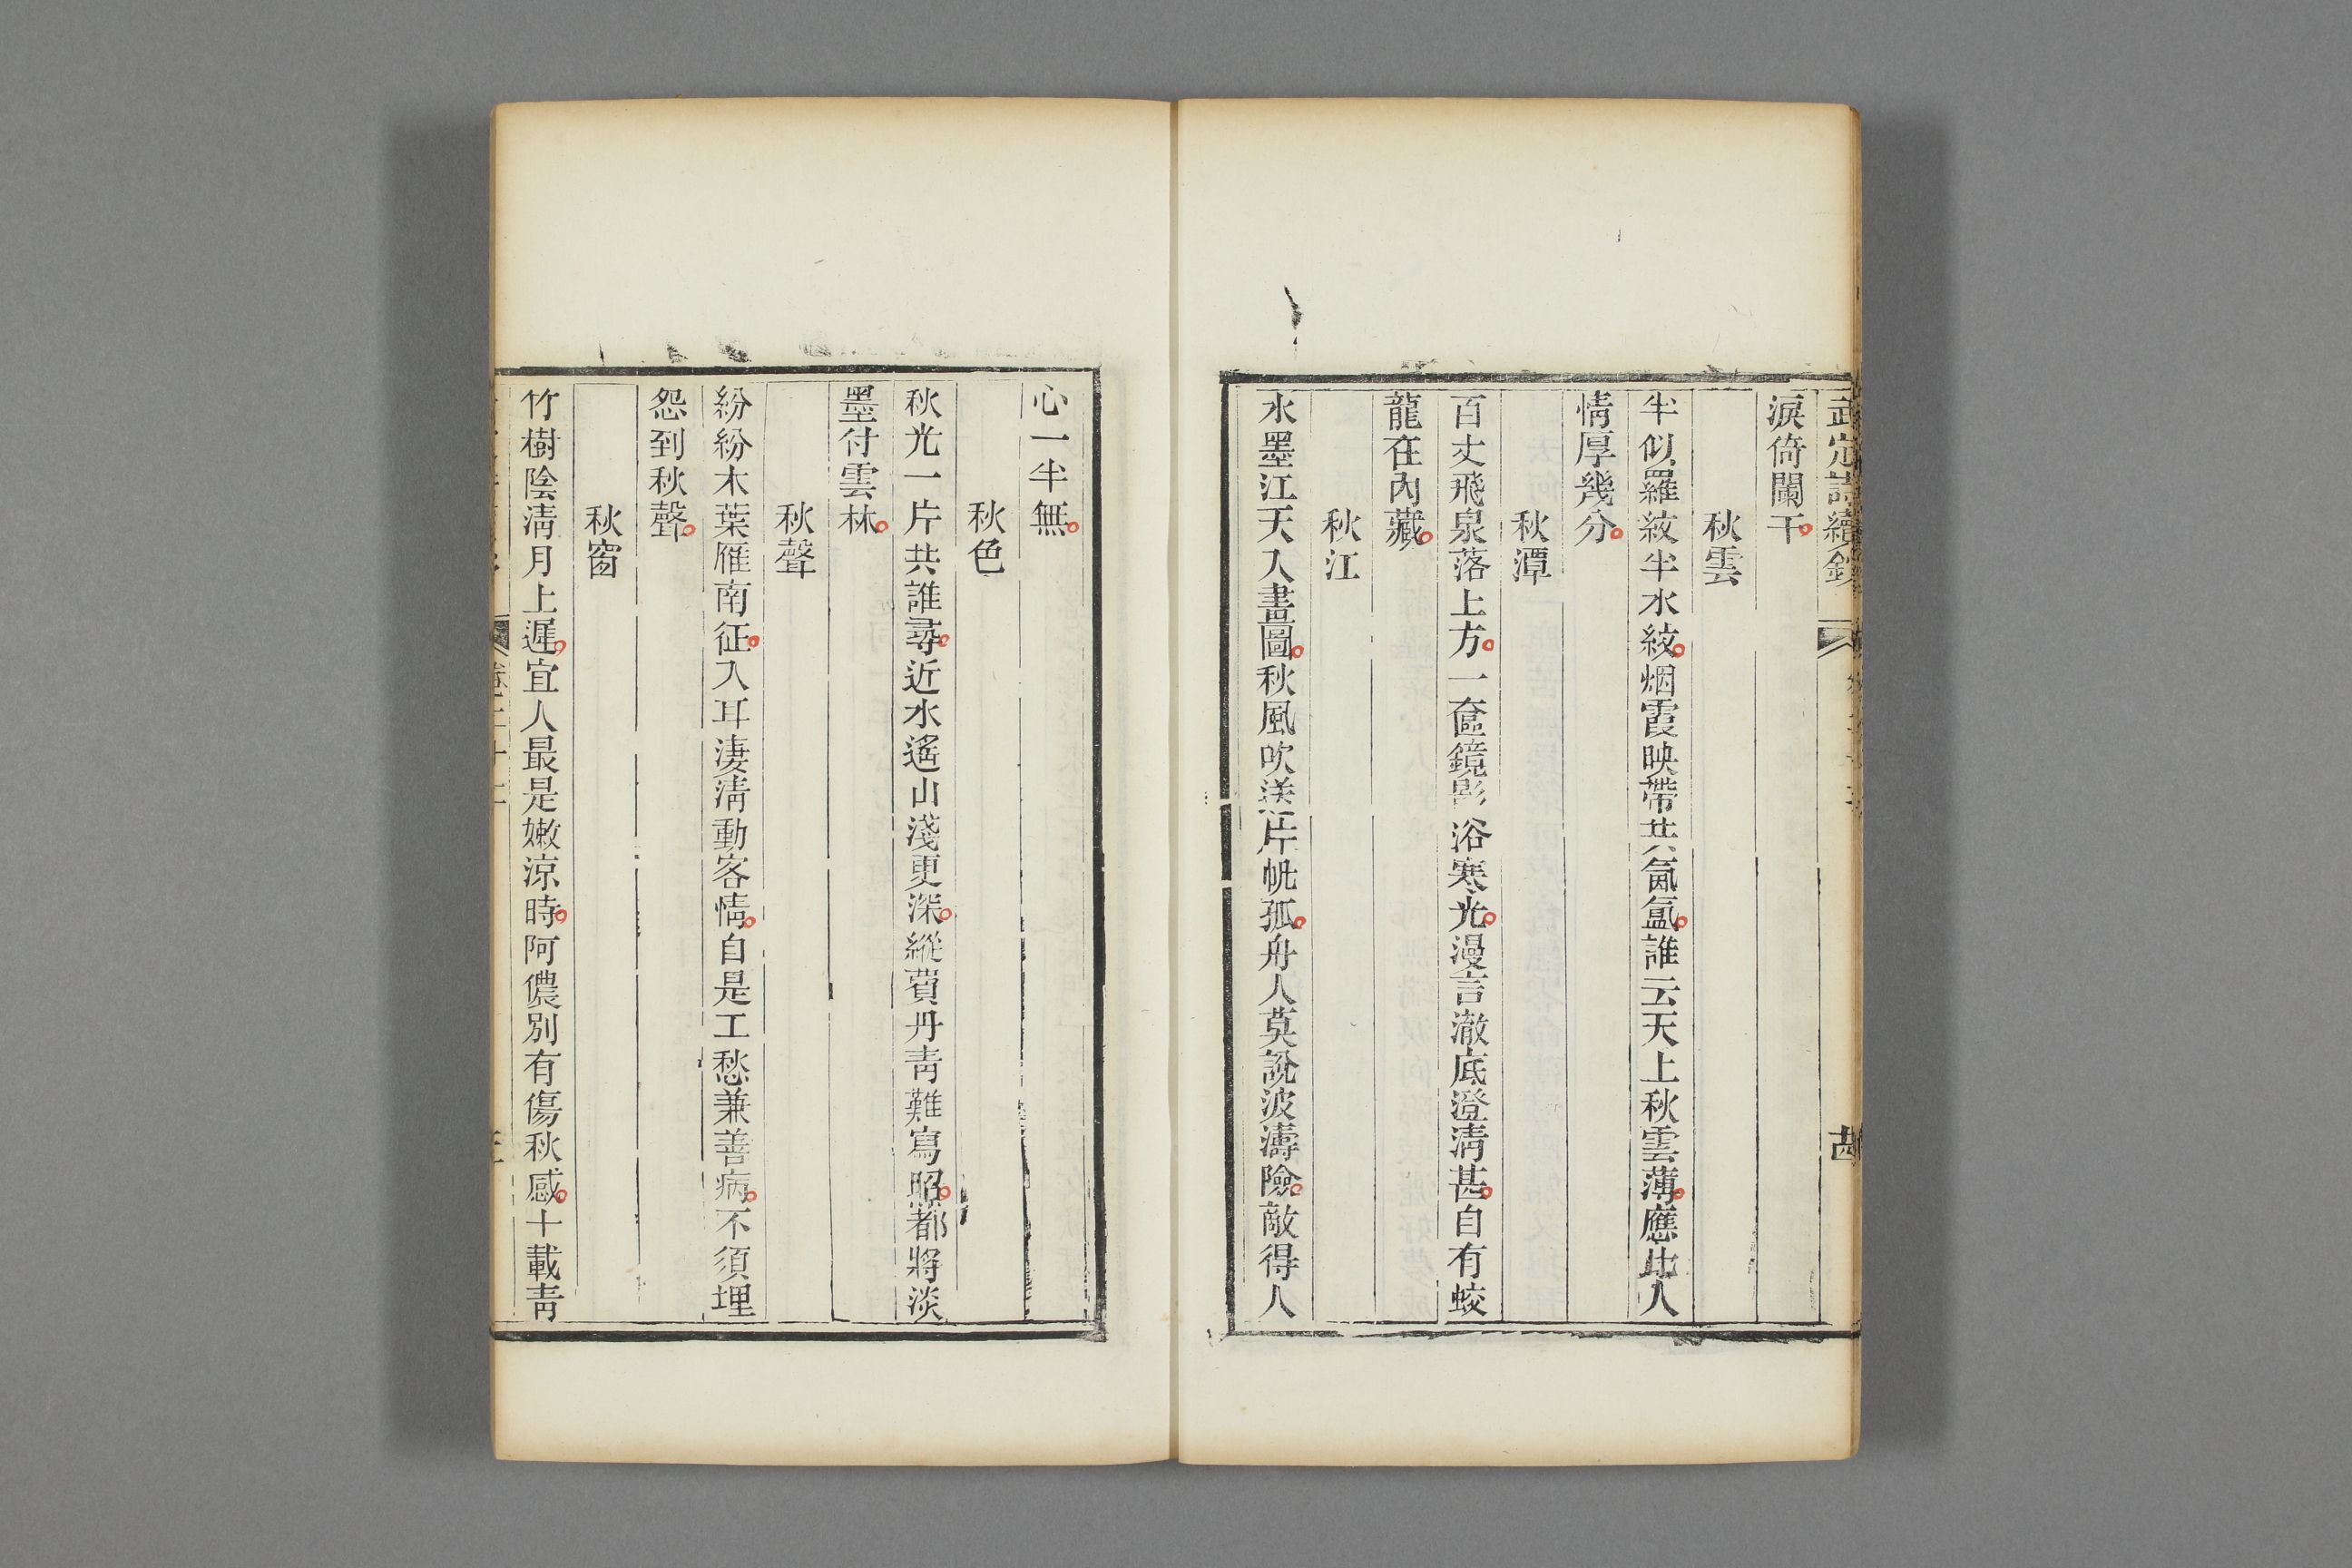 武定詩續鈔
淚倚闌干。
秋雲
半似羅紋半水紋。烟霞映帶共氤氳。誰云天上秋雲薄。應比人
情厚幾分。
秋潭
百丈飛泉落上方。一奩鏡影浴寒光。漫言澈底澄清甚。自有蛟
龍在內藏。
秋江
水墨江天入畫圖。秋風吹送片帆孤。舟人莫說波濤險。敵得人
心一半無。
秋色
秋光一片共誰尋。近水遙山淺更深。縱買丹青難寫照。都將淡
墨付雲林。
秋聲
紛紛木葉雁南征。入耳淒清動客情。自是工愁兼善病。不須埋
怨到秋聲。
秋窗
竹樹陰清月上遲。宜人最是嫩涼時。阿儂別有傷秋感。十載青